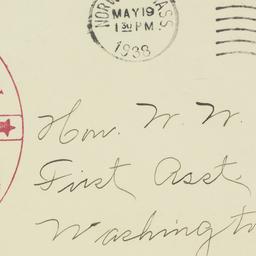 NOR ASS
MAY 19
1 30 PM
1938
Hon. W. W.
First Asst
Washingto